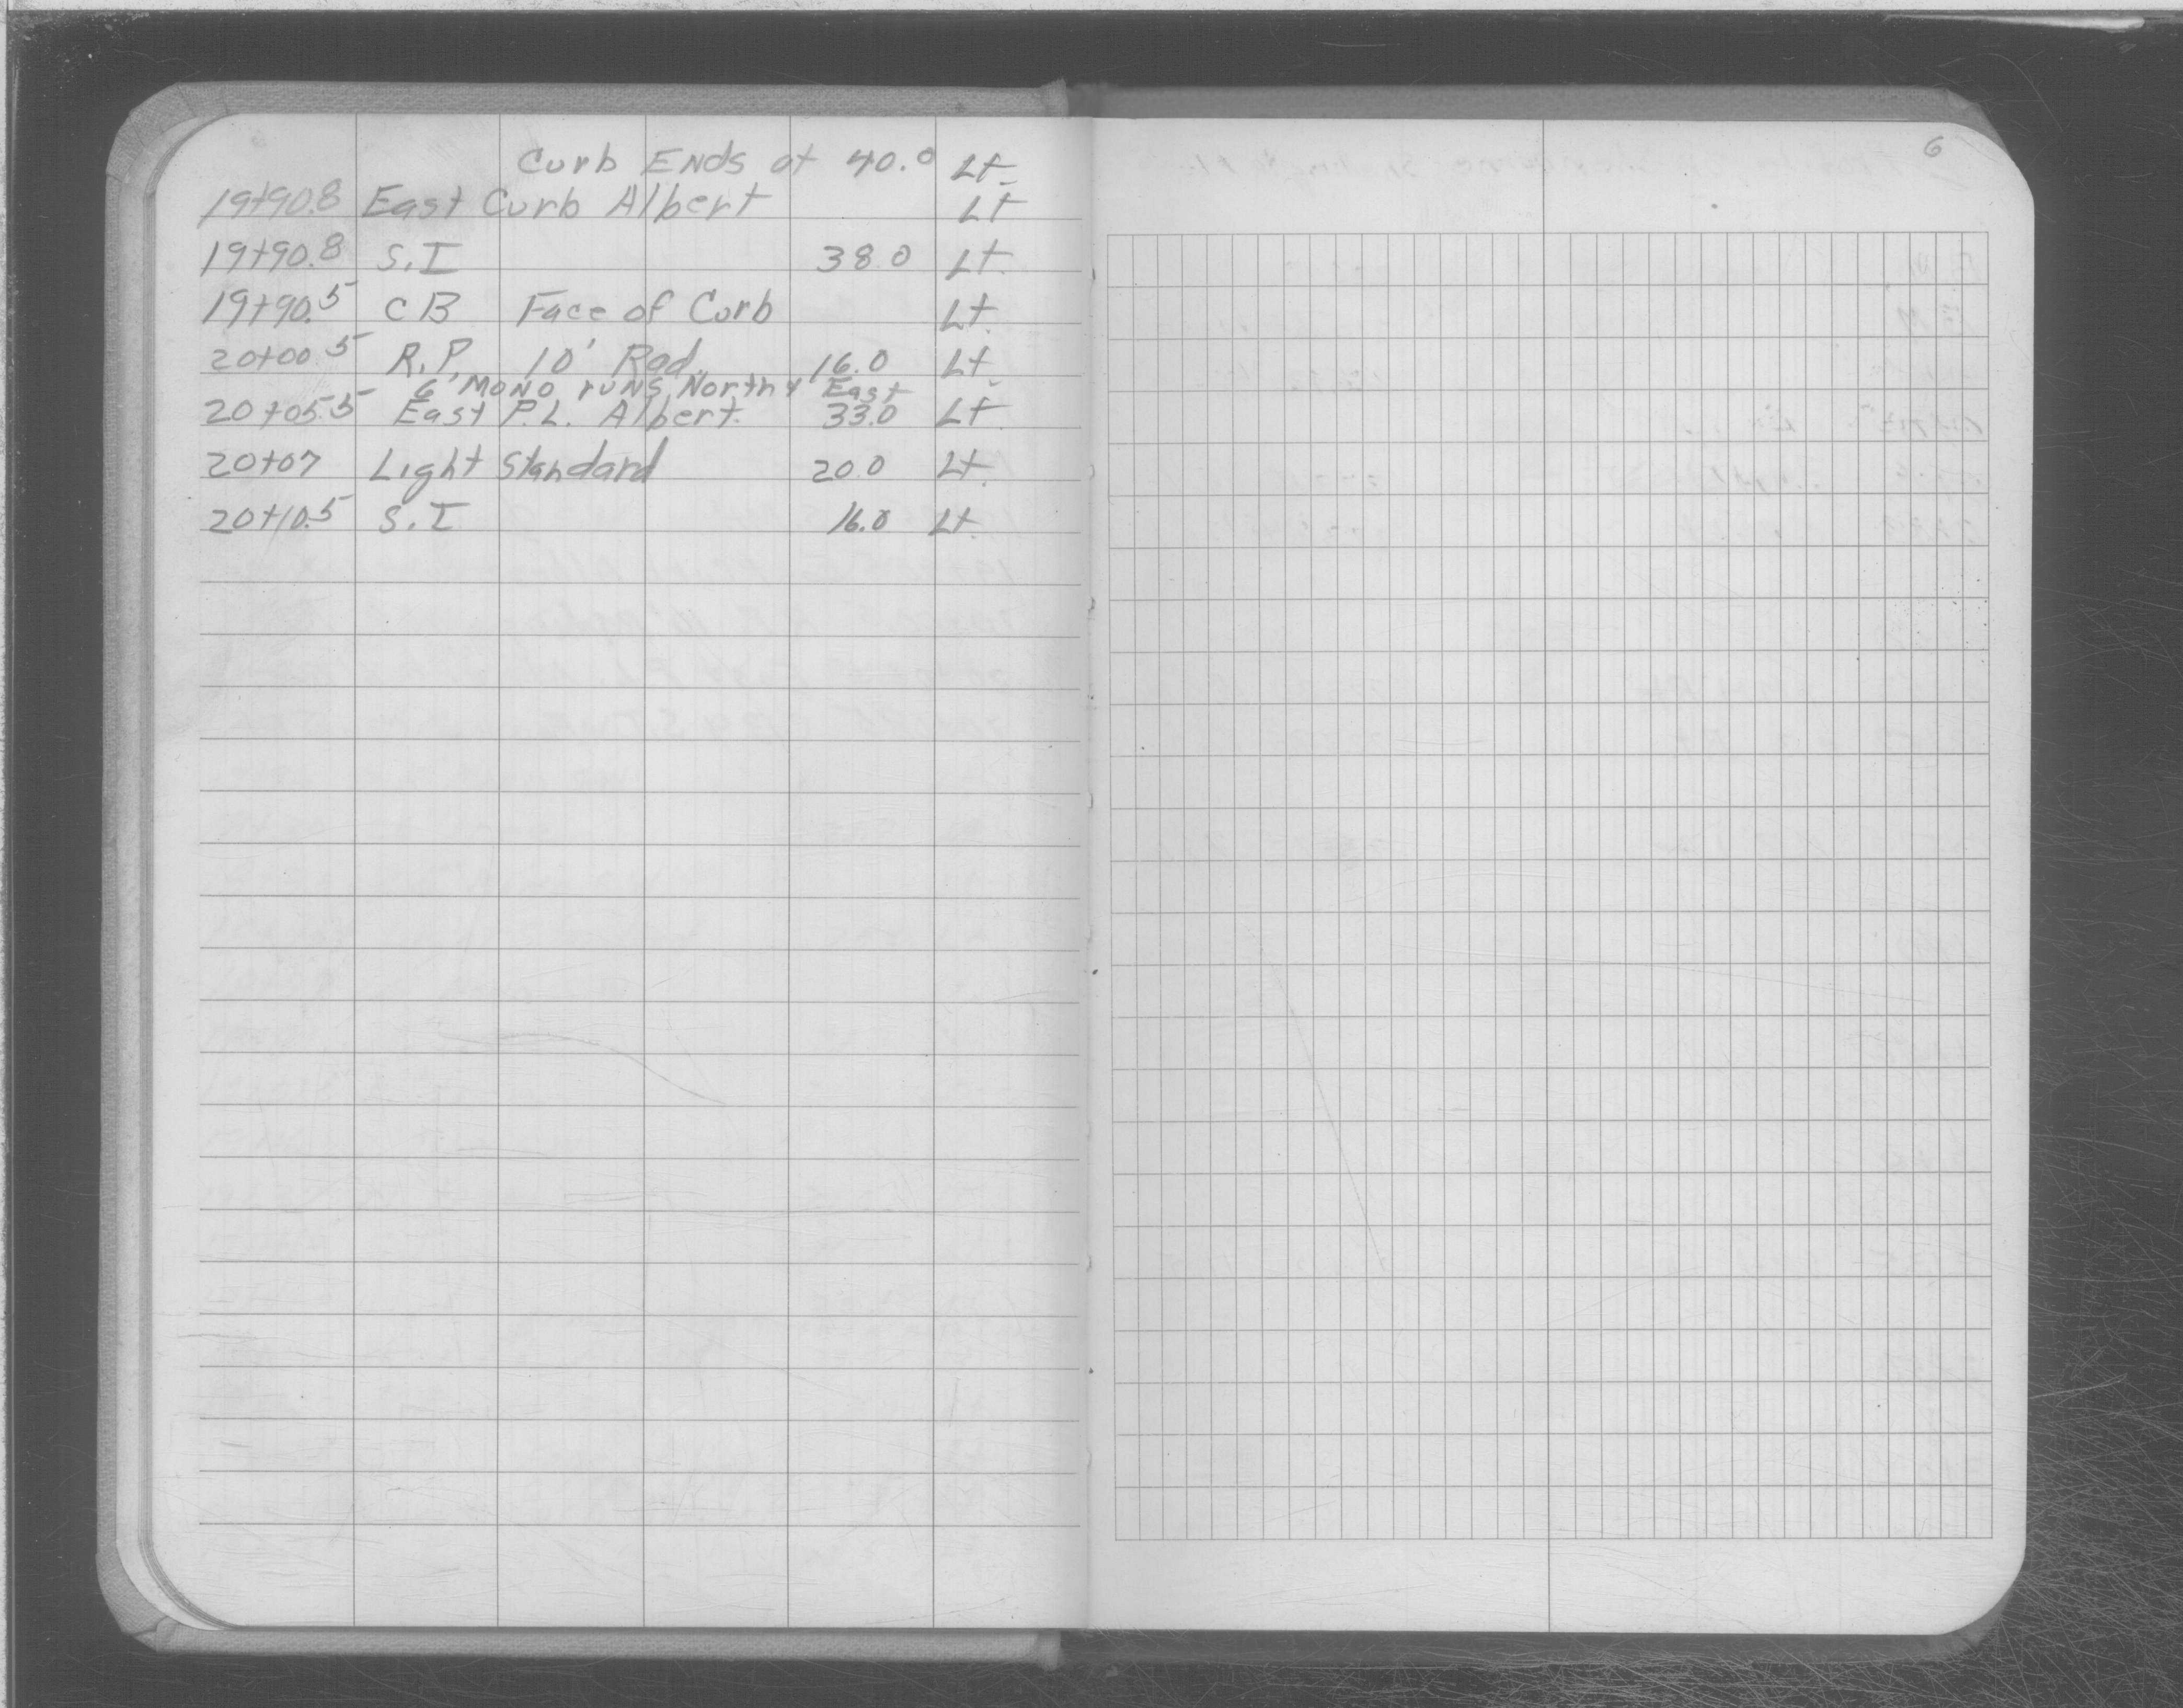 Curb Ends at 40.0 Lt.
19+90.8 East Curb Albert Lt
19+90.8 S.I 38.0 Lt.
19+90.5 CB Face of Curb Lt.
20+00.5 R.P. 10' Rad. 16.0 Lt.
6' Mono runs North & East
20+05.5 East P.L. Albert. 33.0 Lt
20+07 Light Standard 20.0 Lt.
20+10.5 S.I 16.0 Lt.
6